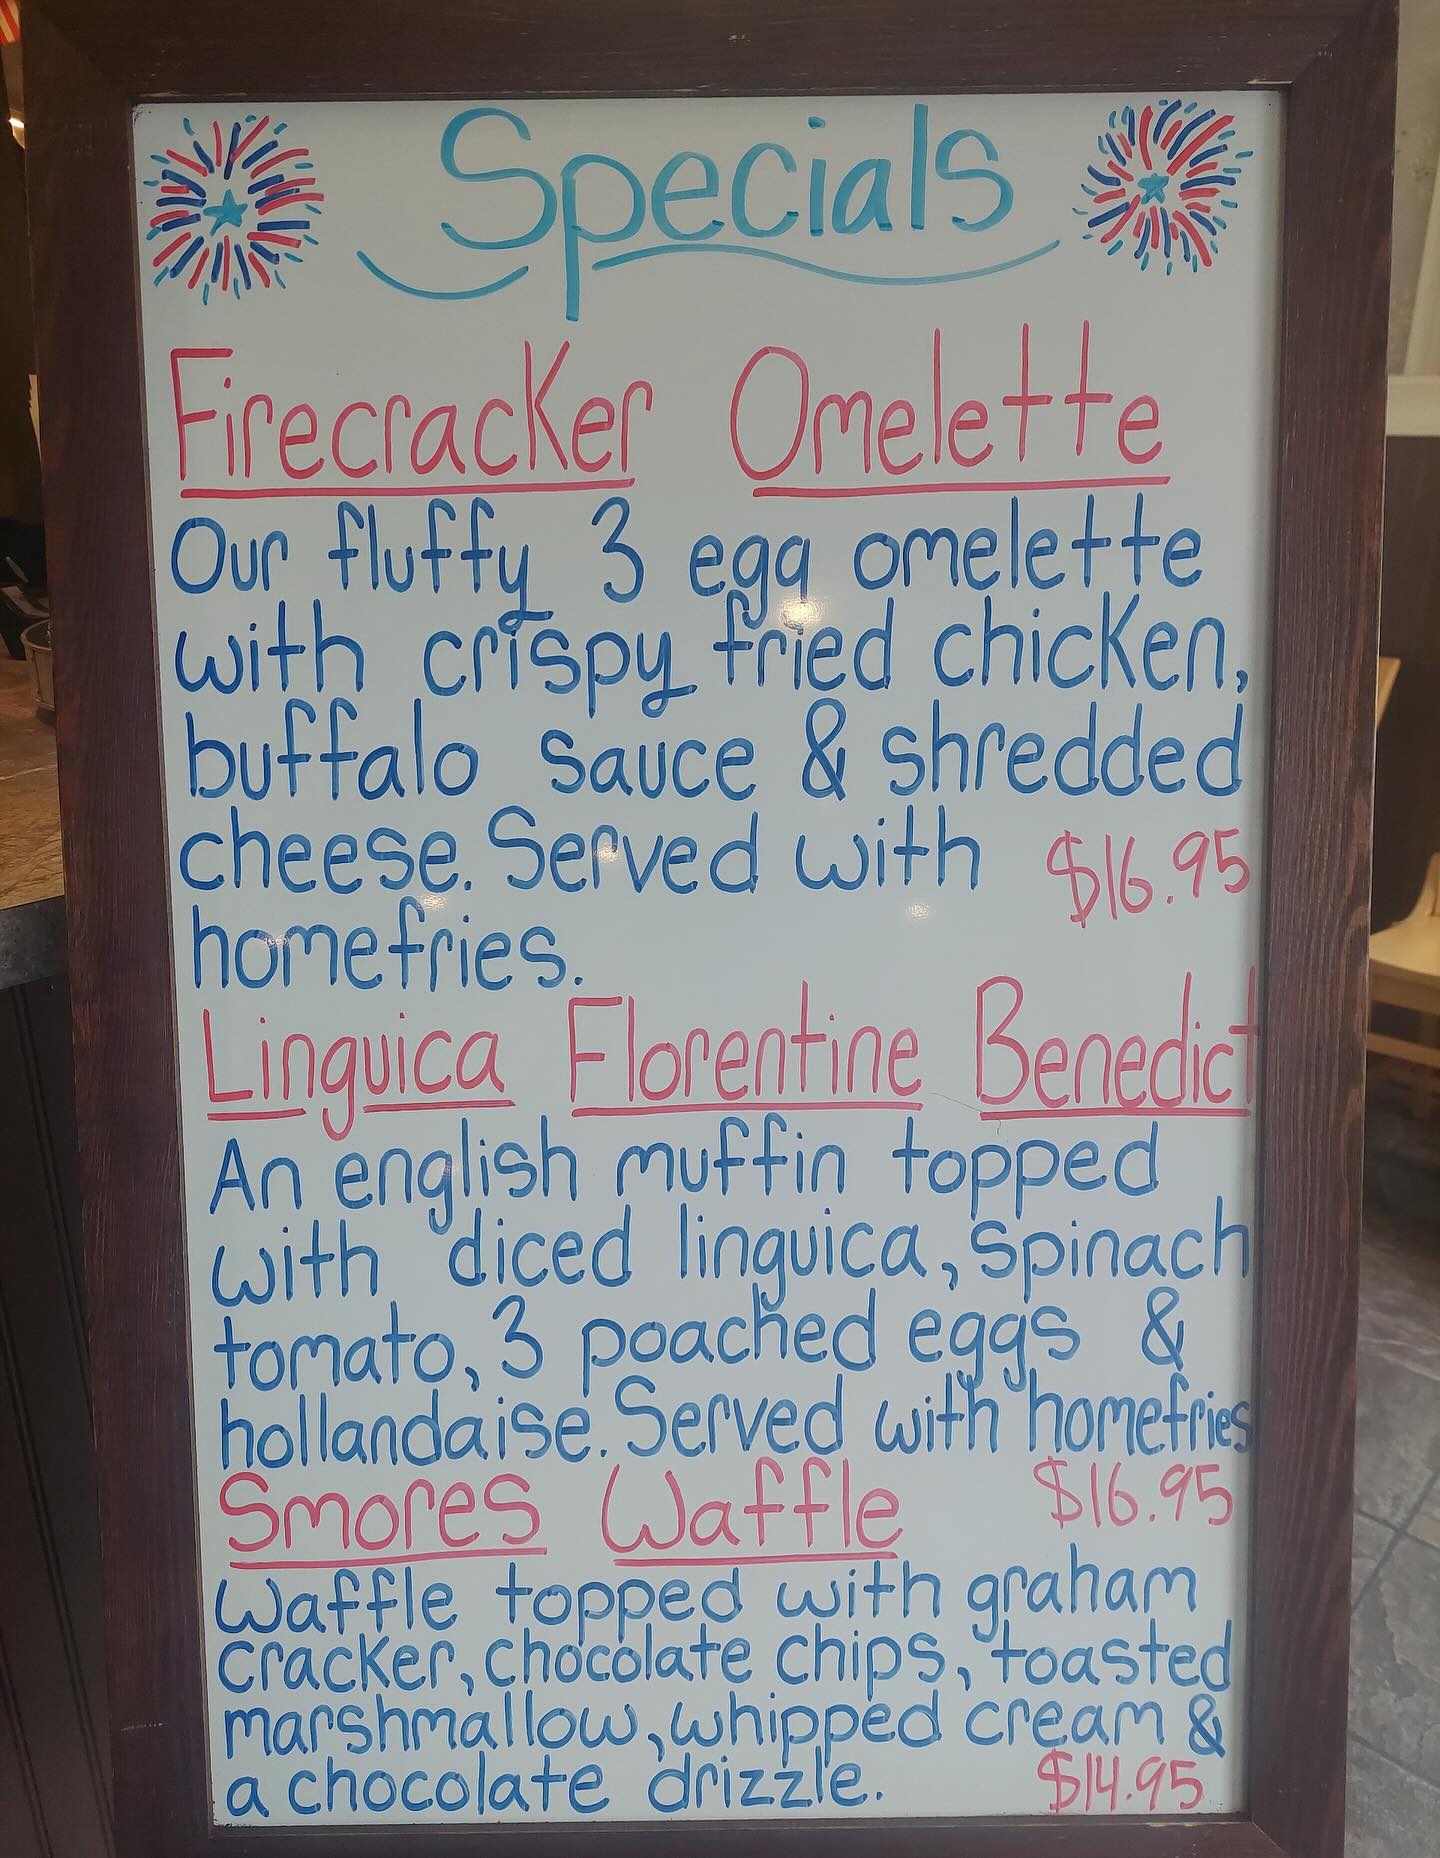 Specials
Firecracker Omelette
Our fluffy 3 egg omelette
with crispy fried chicken,
buffalo sauce & shredded
cheese. Served with $16.95
homefries.
Linguica Florentine Benedict
An english muffin topped
with diced linguica, spinach
tomato, 3 poached eggs &
hollandaise. Served with homefries
Smores Waffle $16.95
Waffle topped with graham
cracker, chocolate chips, toasted
marshmallow, whipped cream &
a chocolate drizzle. $14.95